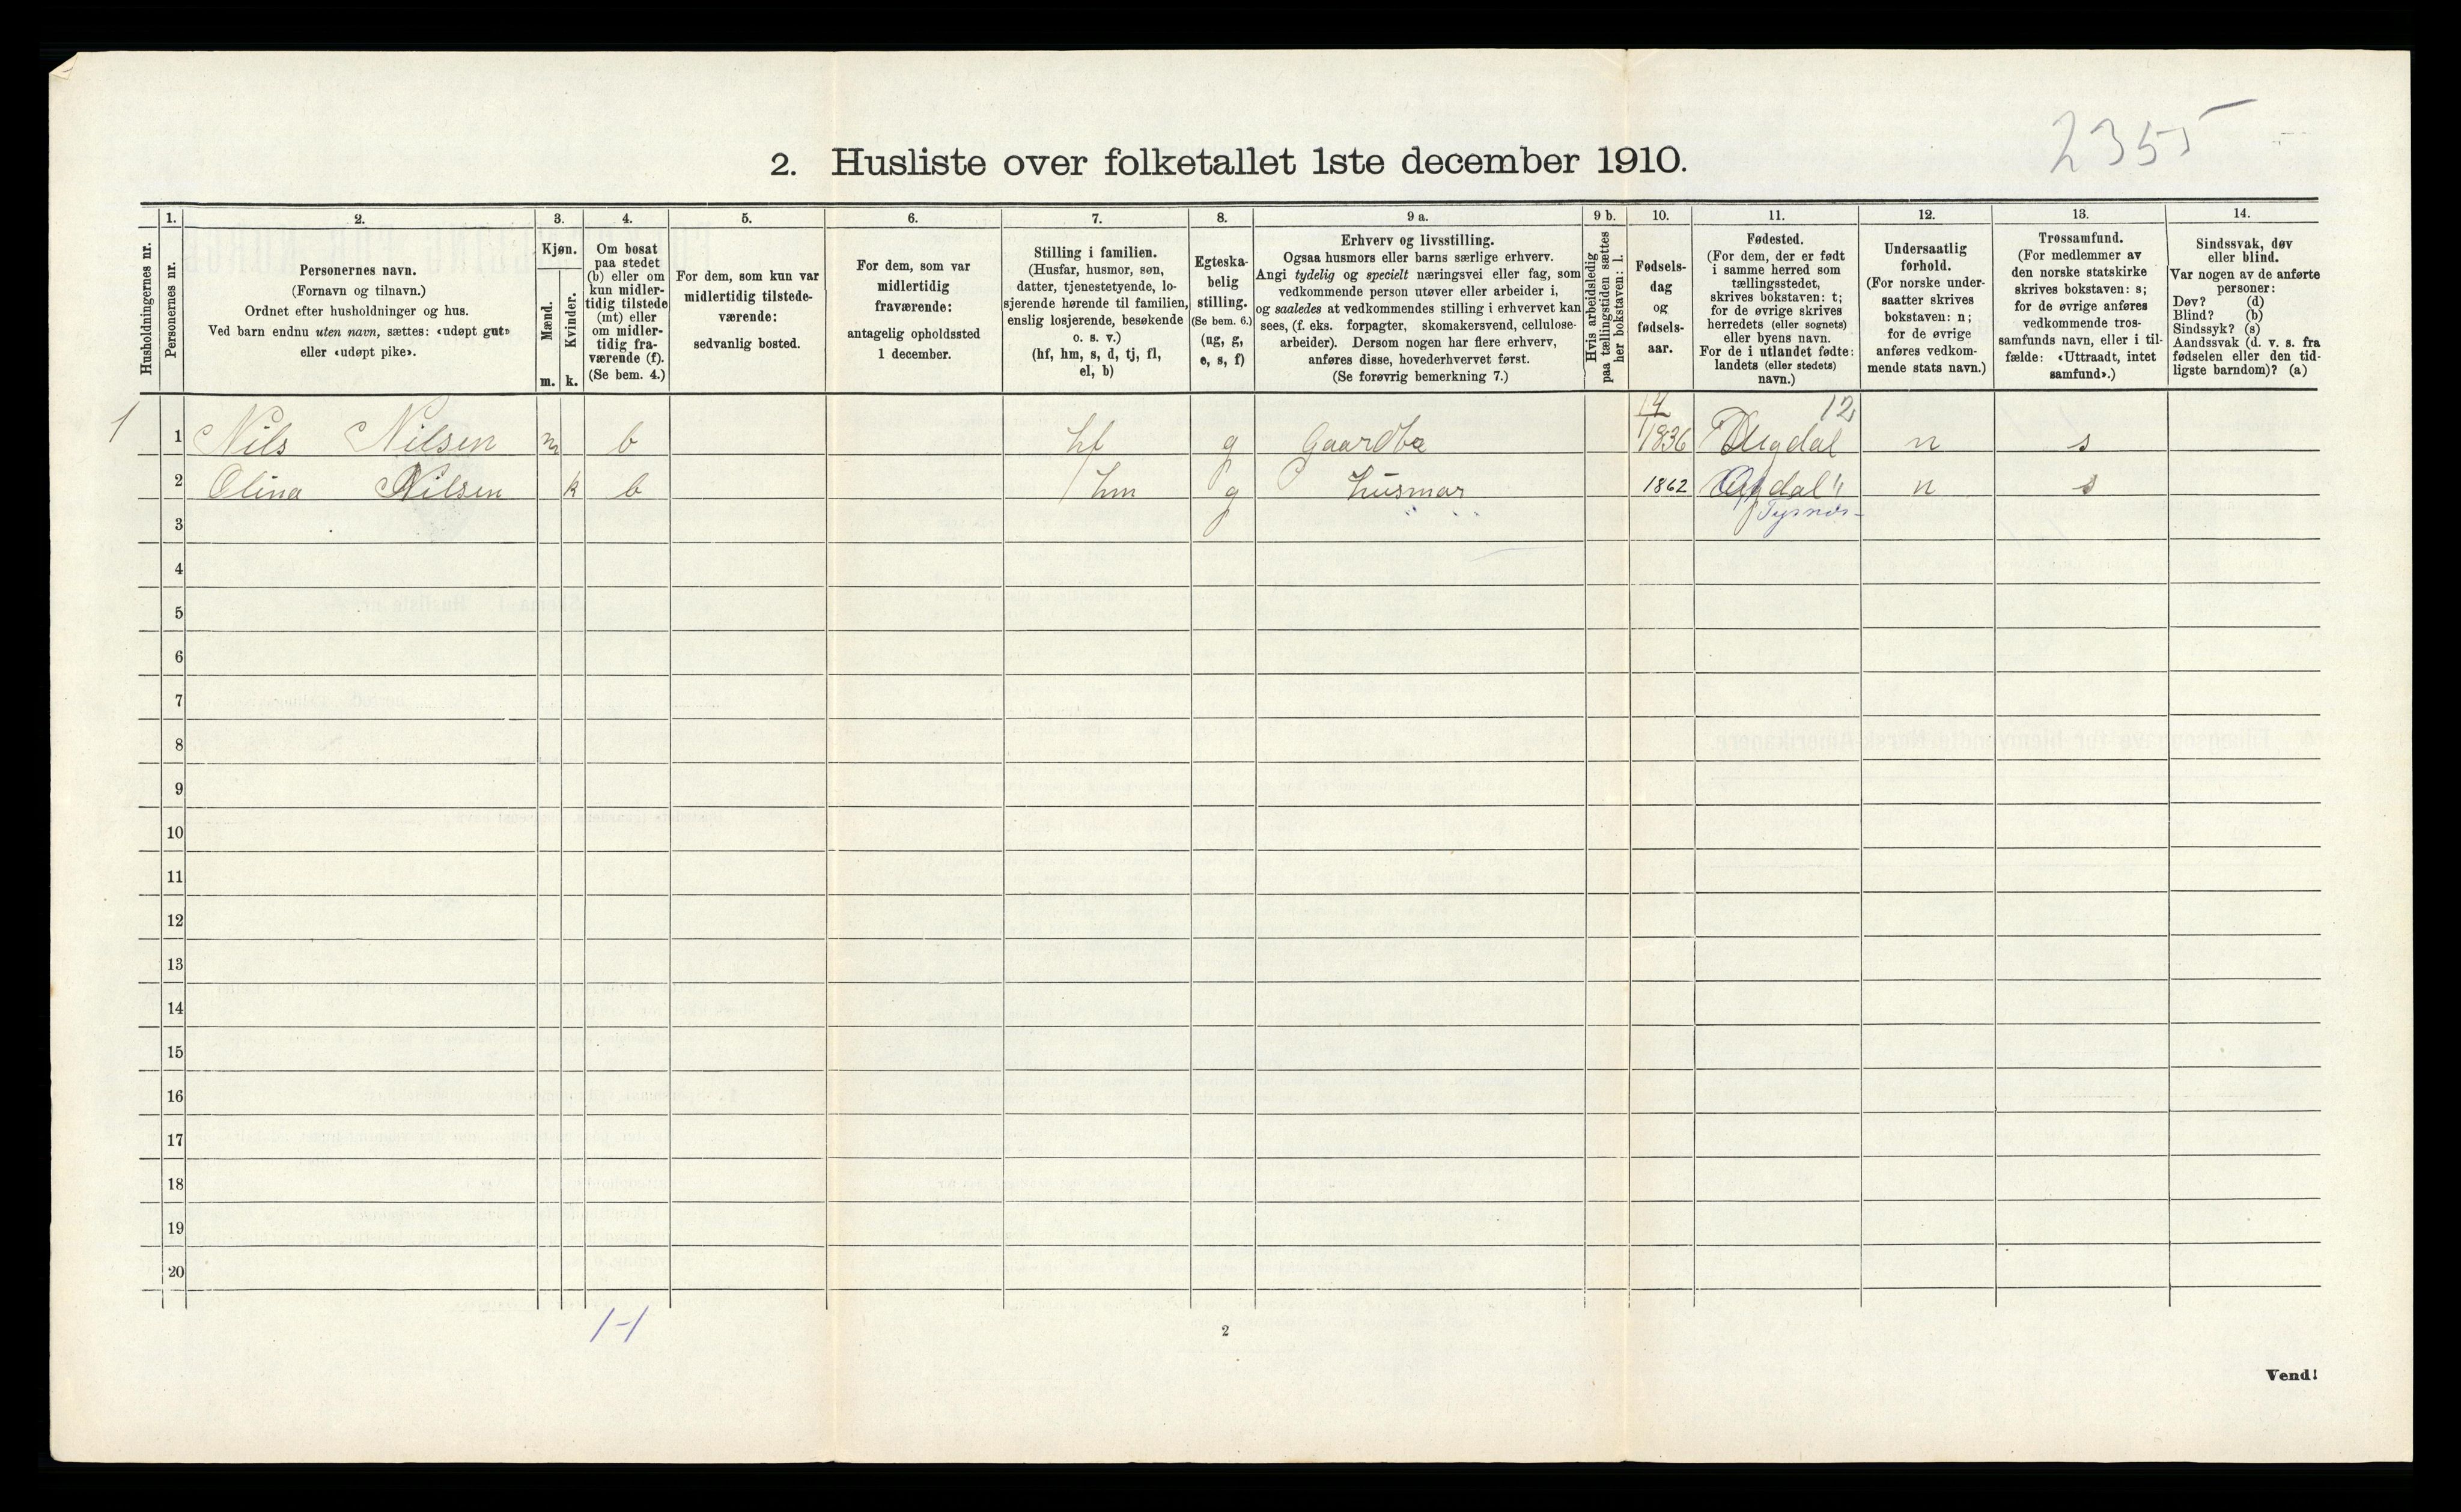 2355
2. Husliste over folketallet 1ste december 1910.
Husholdningernes nr.
1.
Personernes nr.
2.
Personernes navn.
(Fornavn og tilnavn.)
Ordnet efter husholdninger og hus.
Ved barn endnu uten navn, sættes: «udøpt gut»
eller «udøpt pike».
3.
Kjøn.
Mænd.
Kvinder.
m. k.
4.
Om bosat
paa stedet
(b) eller om
kun midler-
tidig tilstede
(mt) eller
om midler-
tidig fra-
værende (f).
(Se bem. 4.)
5.
For dem, som kun var
midlertidig tilstede-
værende:
sedvanlig bosted.
6.
For dem, som var
midlertidig
fraværende:
antagelig opholdssted
1 december.
7.
Stilling i familien.
(Husfar, husmor, søn,
datter, tjenestetyende, lo-
sjerende hørende til familien,
enslig losjerende, besøkende
o. s. v.)
(hf, hm, s, d, tj, fl,
el, b)
8.
Egteska-
belig
stilling.
(Se bem. 6.)
(ug, g,
e, s, f)
9 a.
Erhverv og livsstilling.
Ogsaa husmors eller barns særlige erhverv.
Angi tydelig og specielt næringsvei eller fag, som
vedkommende person utøver eller arbeider i,
og saaledes at vedkommendes stilling i erhvervet kan
sees, (f. eks. forpagter, skomakersvend, cellulose-
arbeider). Dersom nogen har flere erhverv,
anføres disse, hovederhvervet først.
(Se forøvrig bemerkning 7.)
9 b.
Hvis arbeidsledig
paa tællingstiden sættes
her bokstaven: l.
10.
Fødsels-
dag
og
fødsels-
aar.
11.
Fødested.
(For dem, der er født
i samme herred som
tællingsstedet,
skrives bokstaven: t;
for de øvrige skrives
herredets (eller sognets)
eller byens navn.
For de i utlandet fødte:
landets (eller stedets)
navn.)
12.
Undersaatlig
forhold.
(For norske under-
saatter skrives
bokstaven: n;
for de øvrige
anføres vedkom-
mende stats navn.)
13.
Trossamfund.
(For medlemmer av
den norske statskirke
skrives bokstaven: s;
for de øvrige anføres
vedkommende tros-
samfunds navn, eller i til-
fælde: «Uttraadt, intet
samfund».)
14.
Sindssvak, døv
eller blind.
Var nogen av de anførte
personer:
Døv? (d)
Blind? (b)
Sindssyk? (s)
Aandssvak (d. v. s. fra
fødselen eller den tid-
ligste barndom)? (a)
12
1 1 Nils Nilsen m b hf g Gaardbr 1836 n s
2 Olina Nilsen k b hm g husmor 1862 n s
3 " " Tysnes
4
5
6
7
8
9
10
11
12
13
14
15
16
17
18
19
20
1-1
2
Vend!